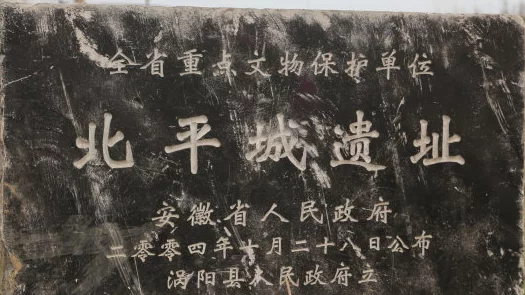 全省重点文物保护单位
北平城遗址
安徽省人民政府
二零零四年十月二十八日公布
涡阳县人民政府立